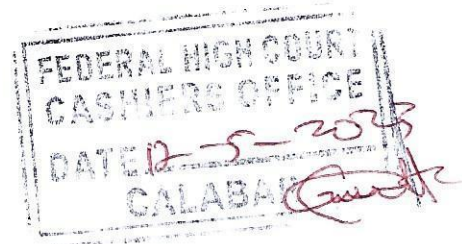 FEDERAL HIGH COURT
CASHIERS OFFICE
DATE 12-5-2023
CALABAR